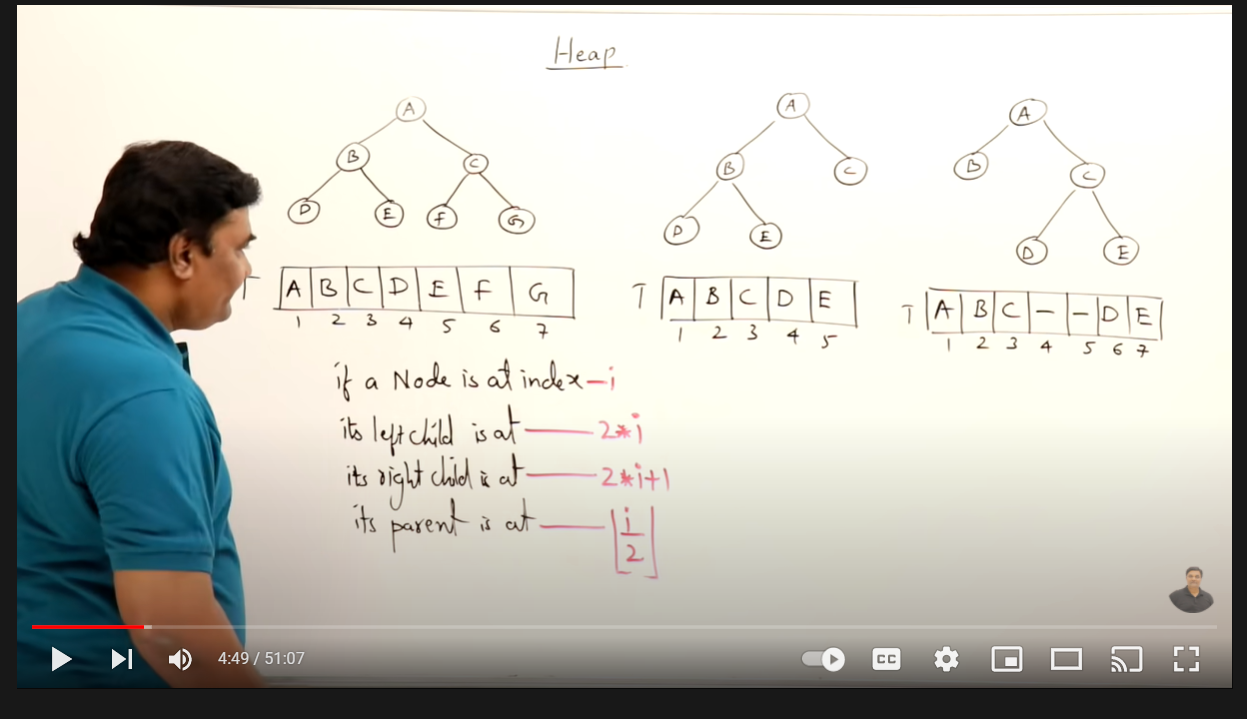 Heap
A
B C
D E F G
A
B C
D E
A
B C
D E
T A B C D E F G
1 2 3 4 5 6 7
T A B C D E
1 2 3 4 5
T A B C - - D E
1 2 3 4 5 6 7
if a Node is at index - i
its left child is at — 2*i
its right child is at — 2*i+1
its parent is at — ⌊i/2⌋
4:49 / 51:07
CC